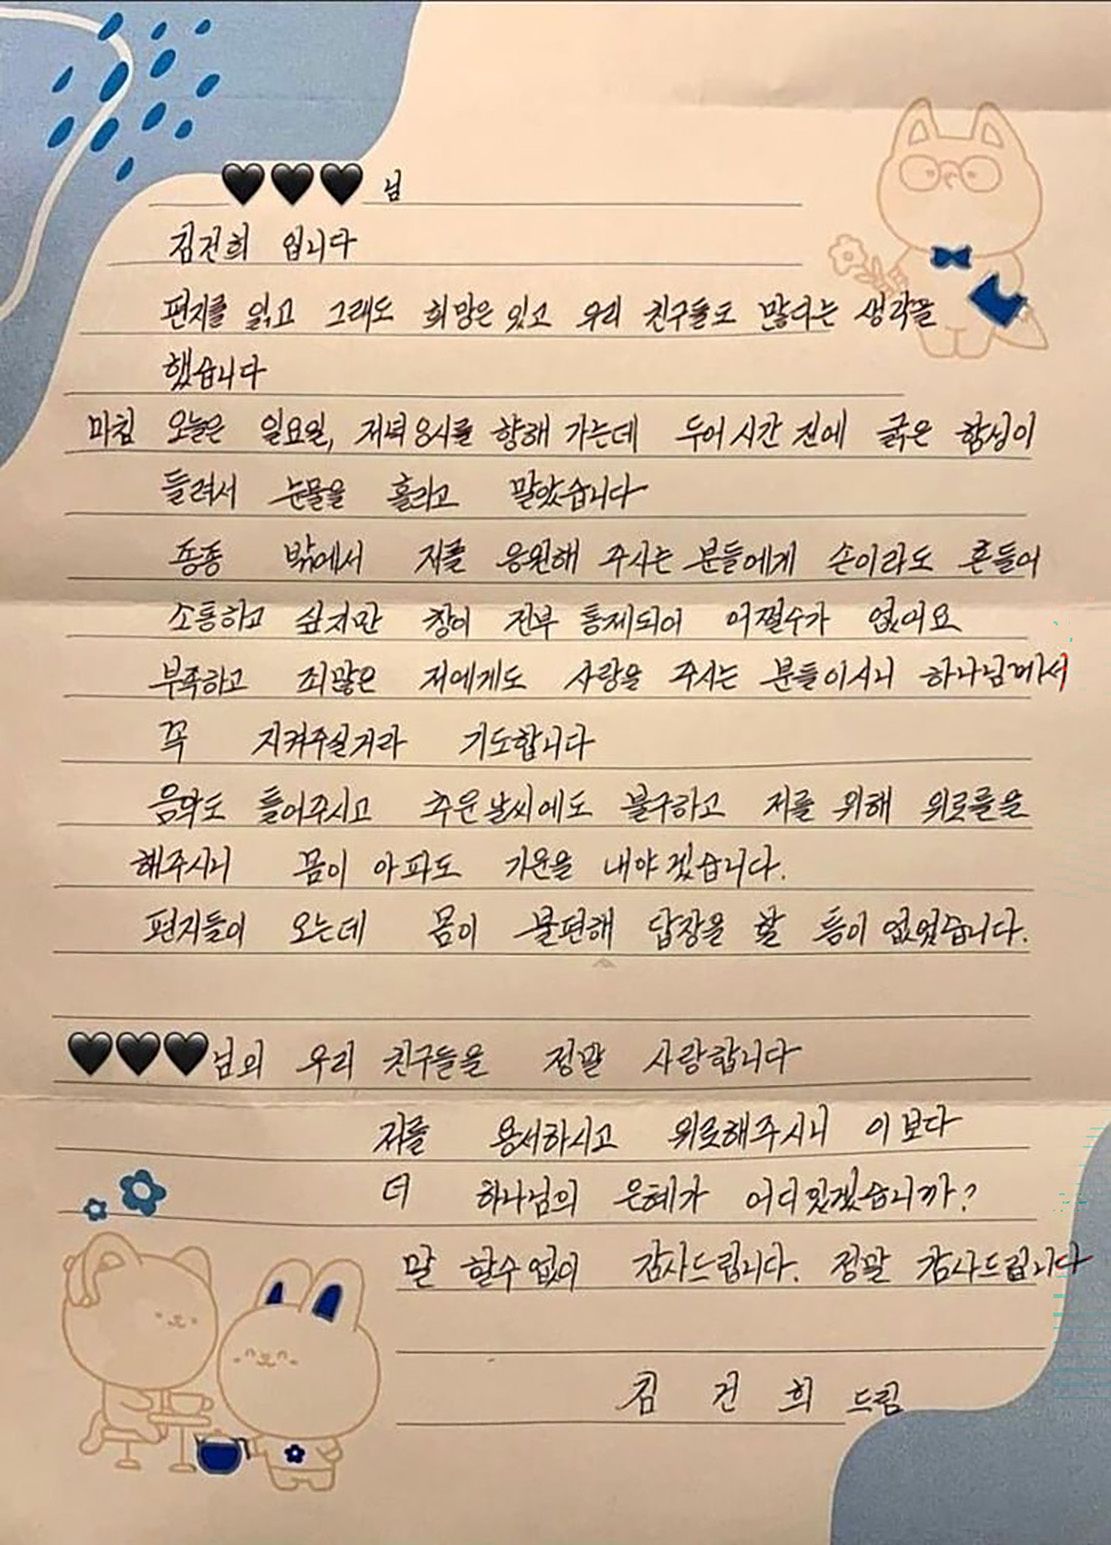 🖤🖤🖤님
김건희 입니다
편지를 읽고 그래도 희망은 있고 우리 친구들도 많다는 생각을
했습니다
마침 오늘은 일요일, 저녁 8시를 향해 가는데 두어시간 전에 굵은 함성이
들려서 눈물을 흘리고 말았습니다
종종 밖에서 저를 응원해 주시는 분들에게 손이라도 흔들어
소통하고 싶지만 창이 전부 통제되어 어쩔수가 없어요
부족하고 죄많은 저에게도 사랑을 주시는 분들이시니 하나님께서
꼭 지켜주실거라 기도합니다
음악도 틀어주시고 추운날씨에도 불구하고 저를 위해 위로를을
해주시니 몸이 아파도 기운을 내야겠습니다.
편지들이 오는데 몸이 불편해 답장을 할 틈이 없었습니다.
🖤🖤🖤님의 우리 친구들을 정말 사랑합니다
저를 용서하시고 위로해주시니 이보다
더 하나님의 은혜가 어디있겠습니까?
말 할수없이 감사드립니다. 정말 감사드립니다
김 건 희 드림